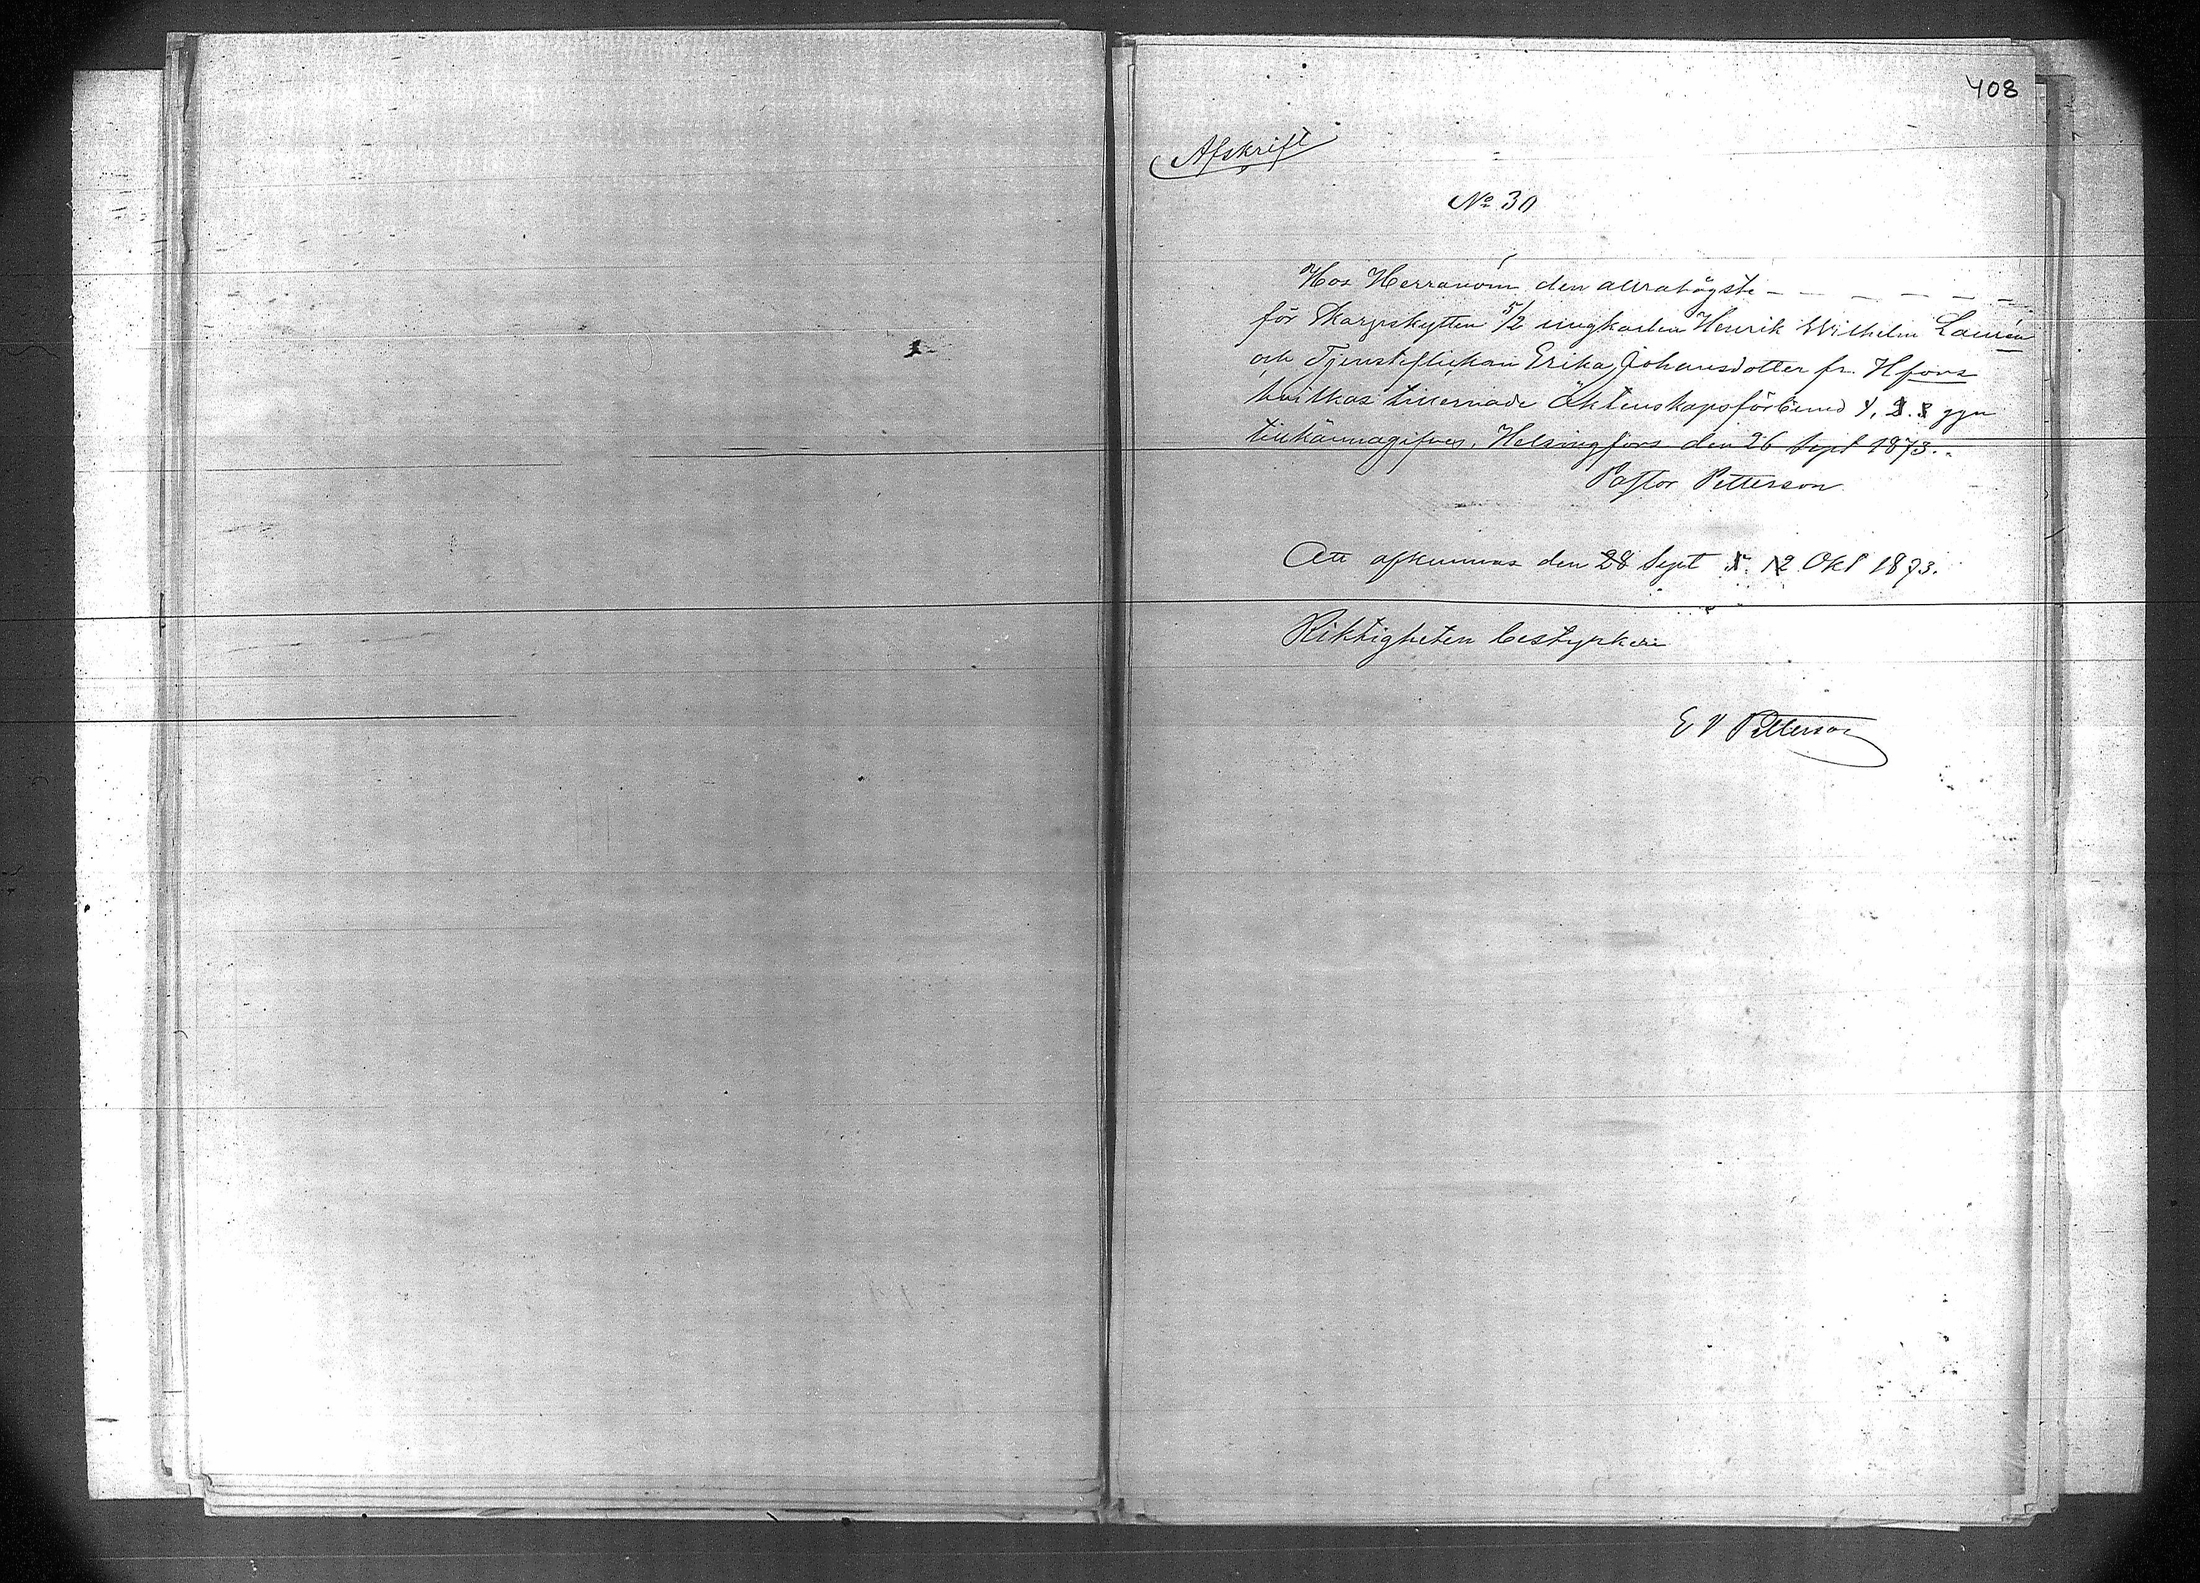 408
Afskrift
No 30
Hos Herranom den allrahögste - - - - - -
för Skarpskytten 5/2 ungkarlen Henrik Wilhelm Laurén
och Tjensteflickan Erika Johansdotter fr. Hfors
hvilkas tillernade Äktenskapsförbund 1. 2. 3 ggn
tillkännagifves. Helsingfors den 26 Sept 1873.
Pastor Petterson
Att afkunnas den 28 Sept 5. 12 Okt 1873.
Riktigheten bestyrker
E V Petterson